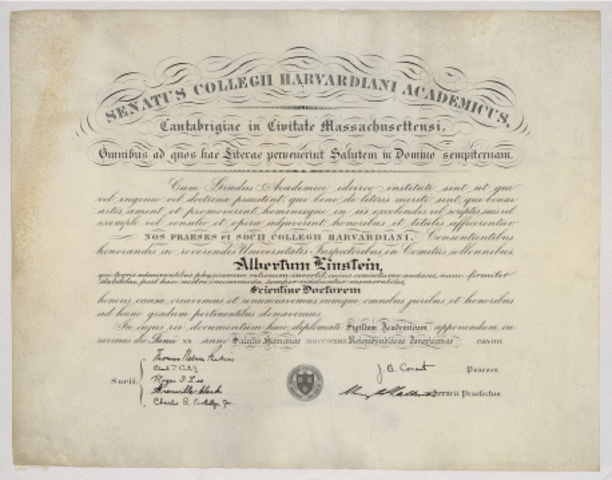 SENATUS COLLEGII HARVARDIANI ACADEMICUS,
Cantabrigiae in Civitate Massachusettensi,
Omnibus ad quos hae Literae pervenerint Salutem in Domino sempiternam.
Cum Gradus Academici idcirco instituti sint ut qui
vel ingenio vel doctrina praestent, qui bene de literis meriti sint, qui bonas
artes ament et promoverint, hominesque in iis excolendis vel scriptis suis vel
exemplo vel consilio et opera adjuverint honoribus et titulis afficerentur
NOS PRAESES et SOCII COLLEGII HARVARDIANI, Consentientibus
honorandis ac reverendis Universitatis Inspectoribus in Comitiis sollennibus,
Albertum Einstein,
Scientiae Doctorem
honoris causa, creavimus et renunciavimus eumque omnibus juribus et honoribus
ad hunc gradum pertinentibus donavimus.
In cujus rei documentum huic diplomati Sigillum Academicum apponendum cu
ravimus die Junii xx anno Salutis Humanae
Socii
J. B. Conant Praeses
Praefectus